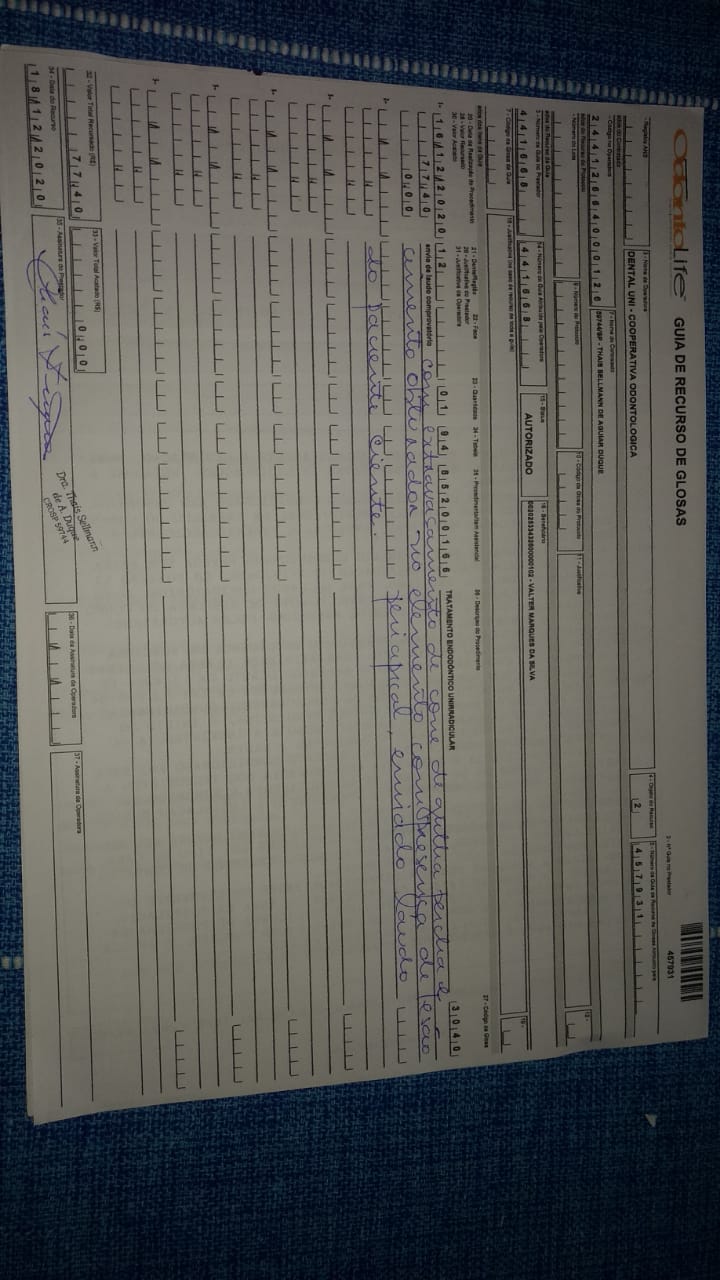 OdontoLife
GUIA DE RECURSO DE GLOSAS
2 - Nº Guia no Prestador
457931
1 - Registro ANS
3 - Nome da Operadora
DENTAL UNI - COOPERATIVA ODONTOLOGICA
4 - Objeto do Recurso
2
5 - Número da Guia de Recurso de Glosas Atribuído pela
457931
6 - Código na Operadora
24412664000126
7 - Nome do Contratado
59744/SP - THAIS SELLMANN DE AGUIAR DUQUE
8 - Número do Lote
9 - Número do Protocolo
10 - Código da Glosa do Protocolo
11 - Justificativa
12 -
13 - Número da Guia no Prestador
441668
14 - Número da Guia Atribuído pela Operadora
441668
15 - Status
AUTORIZADO
16 - Beneficiário
VALTER MARQUES DA SILVA
17 - Código da Glosa da Guia
18 - Justificativa (no caso de recurso de toda a guia)
19 -
20 - Data de Realização do Procedimento
21 - Dente/Região
22 - Face
23 - Quantidade
24 - Tabela
25 - Procedimento/Item Assistencial
26 - Descrição do Procedimento
27 - Código da Glosa
28 - Valor Recursado
29 - Justificativa do Prestador
30 - Valor Acatado
31 - Justificativa da Operadora
1- 16/12/2020 12 01 94 85200166 TRATAMENTO ENDODÔNTICO UNIRRADICULAR 3040
77,40 envio de laudo comprovatório com extravasamento de cone de guttha percha e
0,00 cemento obturador no elemento com presença de lesão
periapical, enviado laudo
do paciente ciente.
32 - Valor Total Recursado (R$)
77,40
33 - Valor Total Acatado (R$)
0,00
34 - Data do Recurso
18/12/2020
35 - Assinatura do Prestador
Dra. Thais Sellmann
de A. Duque
CROSP 59744
36 - Data da Assinatura da Operadora
37 - Assinatura da Operadora